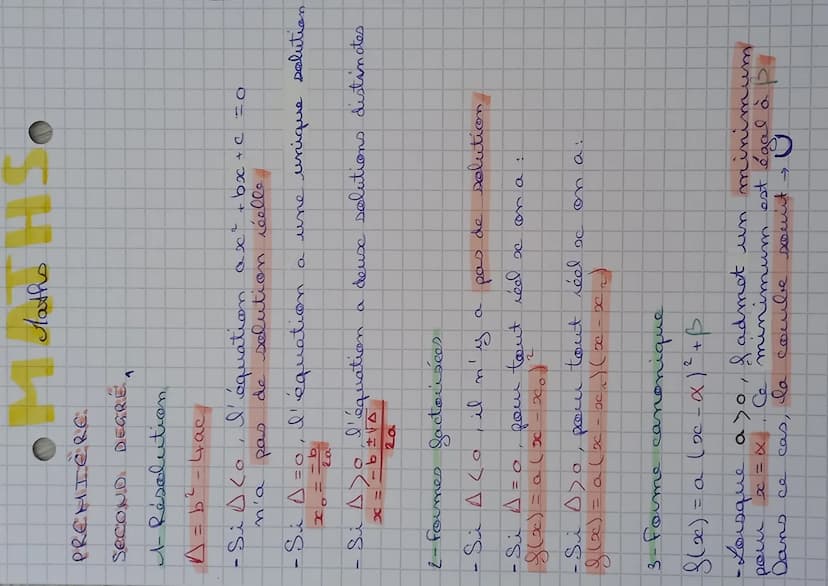 MATHS
Maths
PREMIÈRE.
SECOND DEGRÉ.
1- Résolution
Δ = b² - 4ac
- Si Δ < 0, l'équation ax² + bx + c = 0
n'a pas de solution réelle.
- Si Δ = 0, l'équation a une unique solution
x₀ = -b/2a
- Si Δ > 0 l'équation a deux solutions distinctes
x = -b ± √Δ/2a
2- Formes factorisées
- Si Δ < 0, il n'y a pas de solution
- Si Δ = 0, pour tout réel x on a :
f(x) = a(x - x₀)²
- Si Δ > 0, pour tout réel x on a :
f(x) = a(x - x₁)(x - x₂)
3- Forme canonique
f(x) = a(x - α)² + β
- Lorsque a > 0, f admet un minimum
pour x = α. Ce minimum est égal à β
Dans ce cas, la courbe sourit →